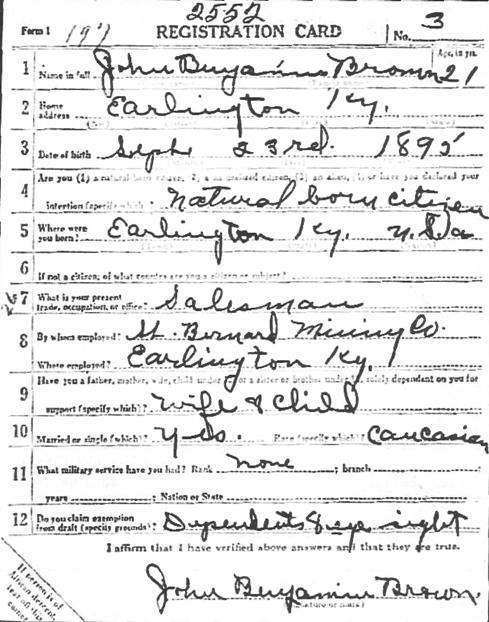 2552
Form 1 REGISTRATION CARD No. 3
Age, in yrs.
1 Name in full John Benjamin Brown 21
2 Home address Earlington Ky.
3 Date of birth Sept 23rd. 1895
4 Are you (1) a natural-born citizen, (2) a naturalized citizen, (3) an alien, (4) or have you declared your
intention (specify which)? Natural born citizen
5 Where were you born? Earlington Ky. U.S.a
6 If not a citizen, of what country are you a citizen or subject?
7 What is your present trade, occupation, or office? Salesman
8 By whom employed? St. Bernard Mining Co.
Where employed? Earlington Ky.
9 Have you a father, mother, wife, child under 12, or a sister or brother under 12, solely dependent on you for
support (specify which)? Wife & Child
10 Married or single (which)? Yes. Race (specify which)? Caucasian
11 What military service have you had? Rank none ; branch
years ; Nation or State
12 Do you claim exemption from draft (specify grounds)? Dependents & eye sight
I affirm that I have verified above answers and that they are true.
John Benjamin Brown
(Signature or mark)
If person is of
African descent,
tear off this
corner